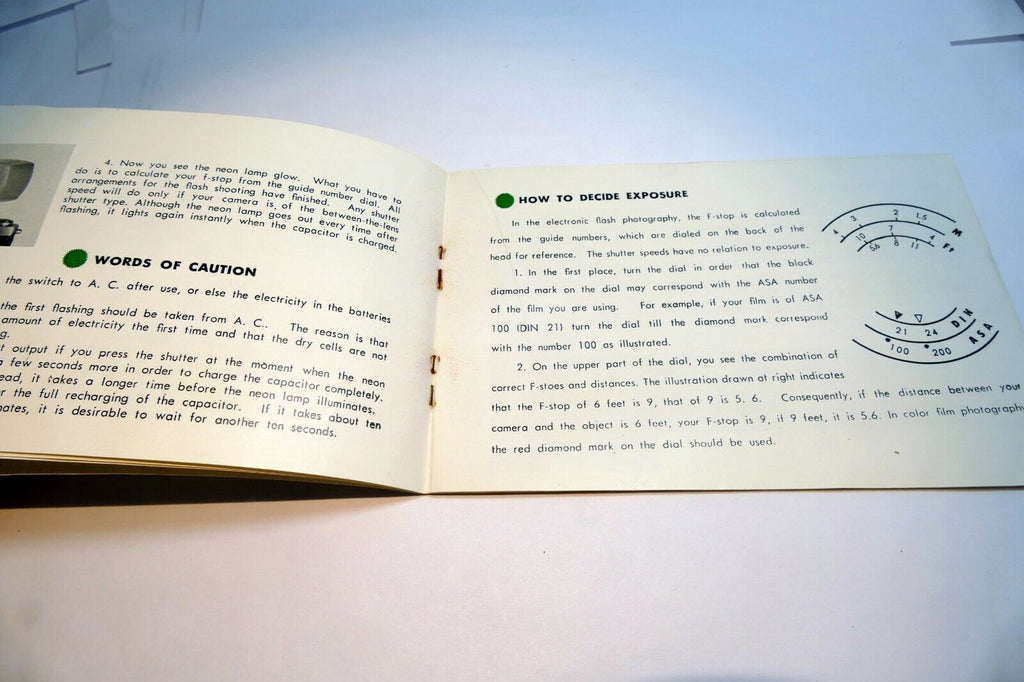 4. Now you see the neon lamp glow. What you have to
do is to calculate your f-stop from the guide number dial. All
arrangements for the flash shooting have finished. Any shutter
speed will do only if your camera is of the between-the-lens
shutter type. Although the neon lamp goes out every time after
flashing, it lights again instantly when the capacitor is charged.
WORDS OF CAUTION
the switch to A. C. after use, or else the electricity in the batteries
the first flashing should be taken from A. C.. The reason is that
amount of electricity the first time and that the dry cells are not
g.
t output if you press the shutter at the moment when the neon
few seconds more in order to charge the capacitor completely.
ead, it takes a longer time before the neon lamp illuminates.
r the full recharging of the capacitor. If it takes about ten
nates, it is desirable to wait for another ten seconds.
HOW TO DECIDE EXPOSURE
In the electronic flash photography, the F-stop is calculated
from the guide numbers, which are dialed on the back of the
head for reference. The shutter speeds have no relation to exposure.
1. In the first place, turn the dial in order that the black
diamond mark on the dial may correspond with the ASA number
of the film you are using. For example, if your film is of ASA
100 (DIN 21) turn the dial till the diamond mark correspond
with the number 100 as illustrated.
2. On the upper part of the dial, you see the combination of
correct F-stoes and distances. The illustration drawn at right indicates
that the F-stop of 6 feet is 9, that of 9 is 5. 6. Consequently, if the distance between your
camera and the object is 6 feet, your F-stop is 9, if 9 feet, it is 5.6. In color film photograph
the red diamond mark on the dial should be used.
4 3 2 1.5 M
10 7 4 Ft
5.6 8 11
21 24 DIN
100 200 ASA